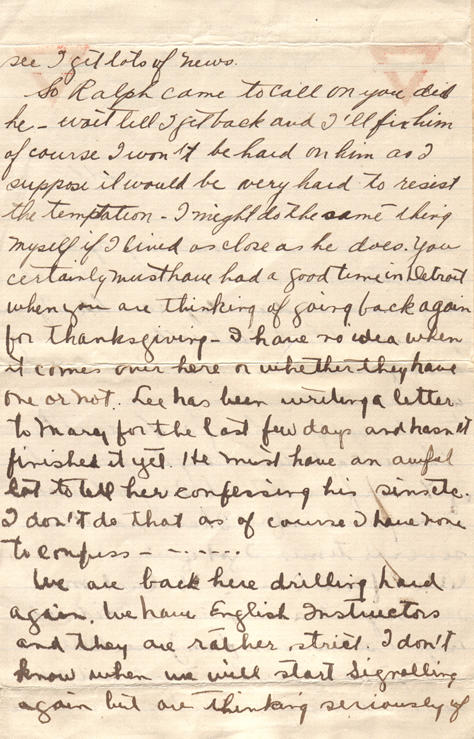 see I get lots of news.
So Ralph came to call on you did
he - wait till I get back and I'll fix him
of course I won't be hard on him as I
suppose it would be very hard to resist
the temptation - I might do the same thing
myself if I lived as close as he does. You
certainly must have had a good time in Detroit
when you are thinking of going back again
for thanksgiving - I have no idea when
it comes over here or whether they have
one or not. Lee has been writing a letter
to Mary for the last few days and hasn't
finished it yet. He must have an awful
lot to tell her confessing his sins etc.
I don't do that as of course I have none
to confess - - - . . . .
We are back here drilling hard
again. We have English Instructors
and they are rather strict. I don't
know when we will start Signalling
again but are thinking seriously of